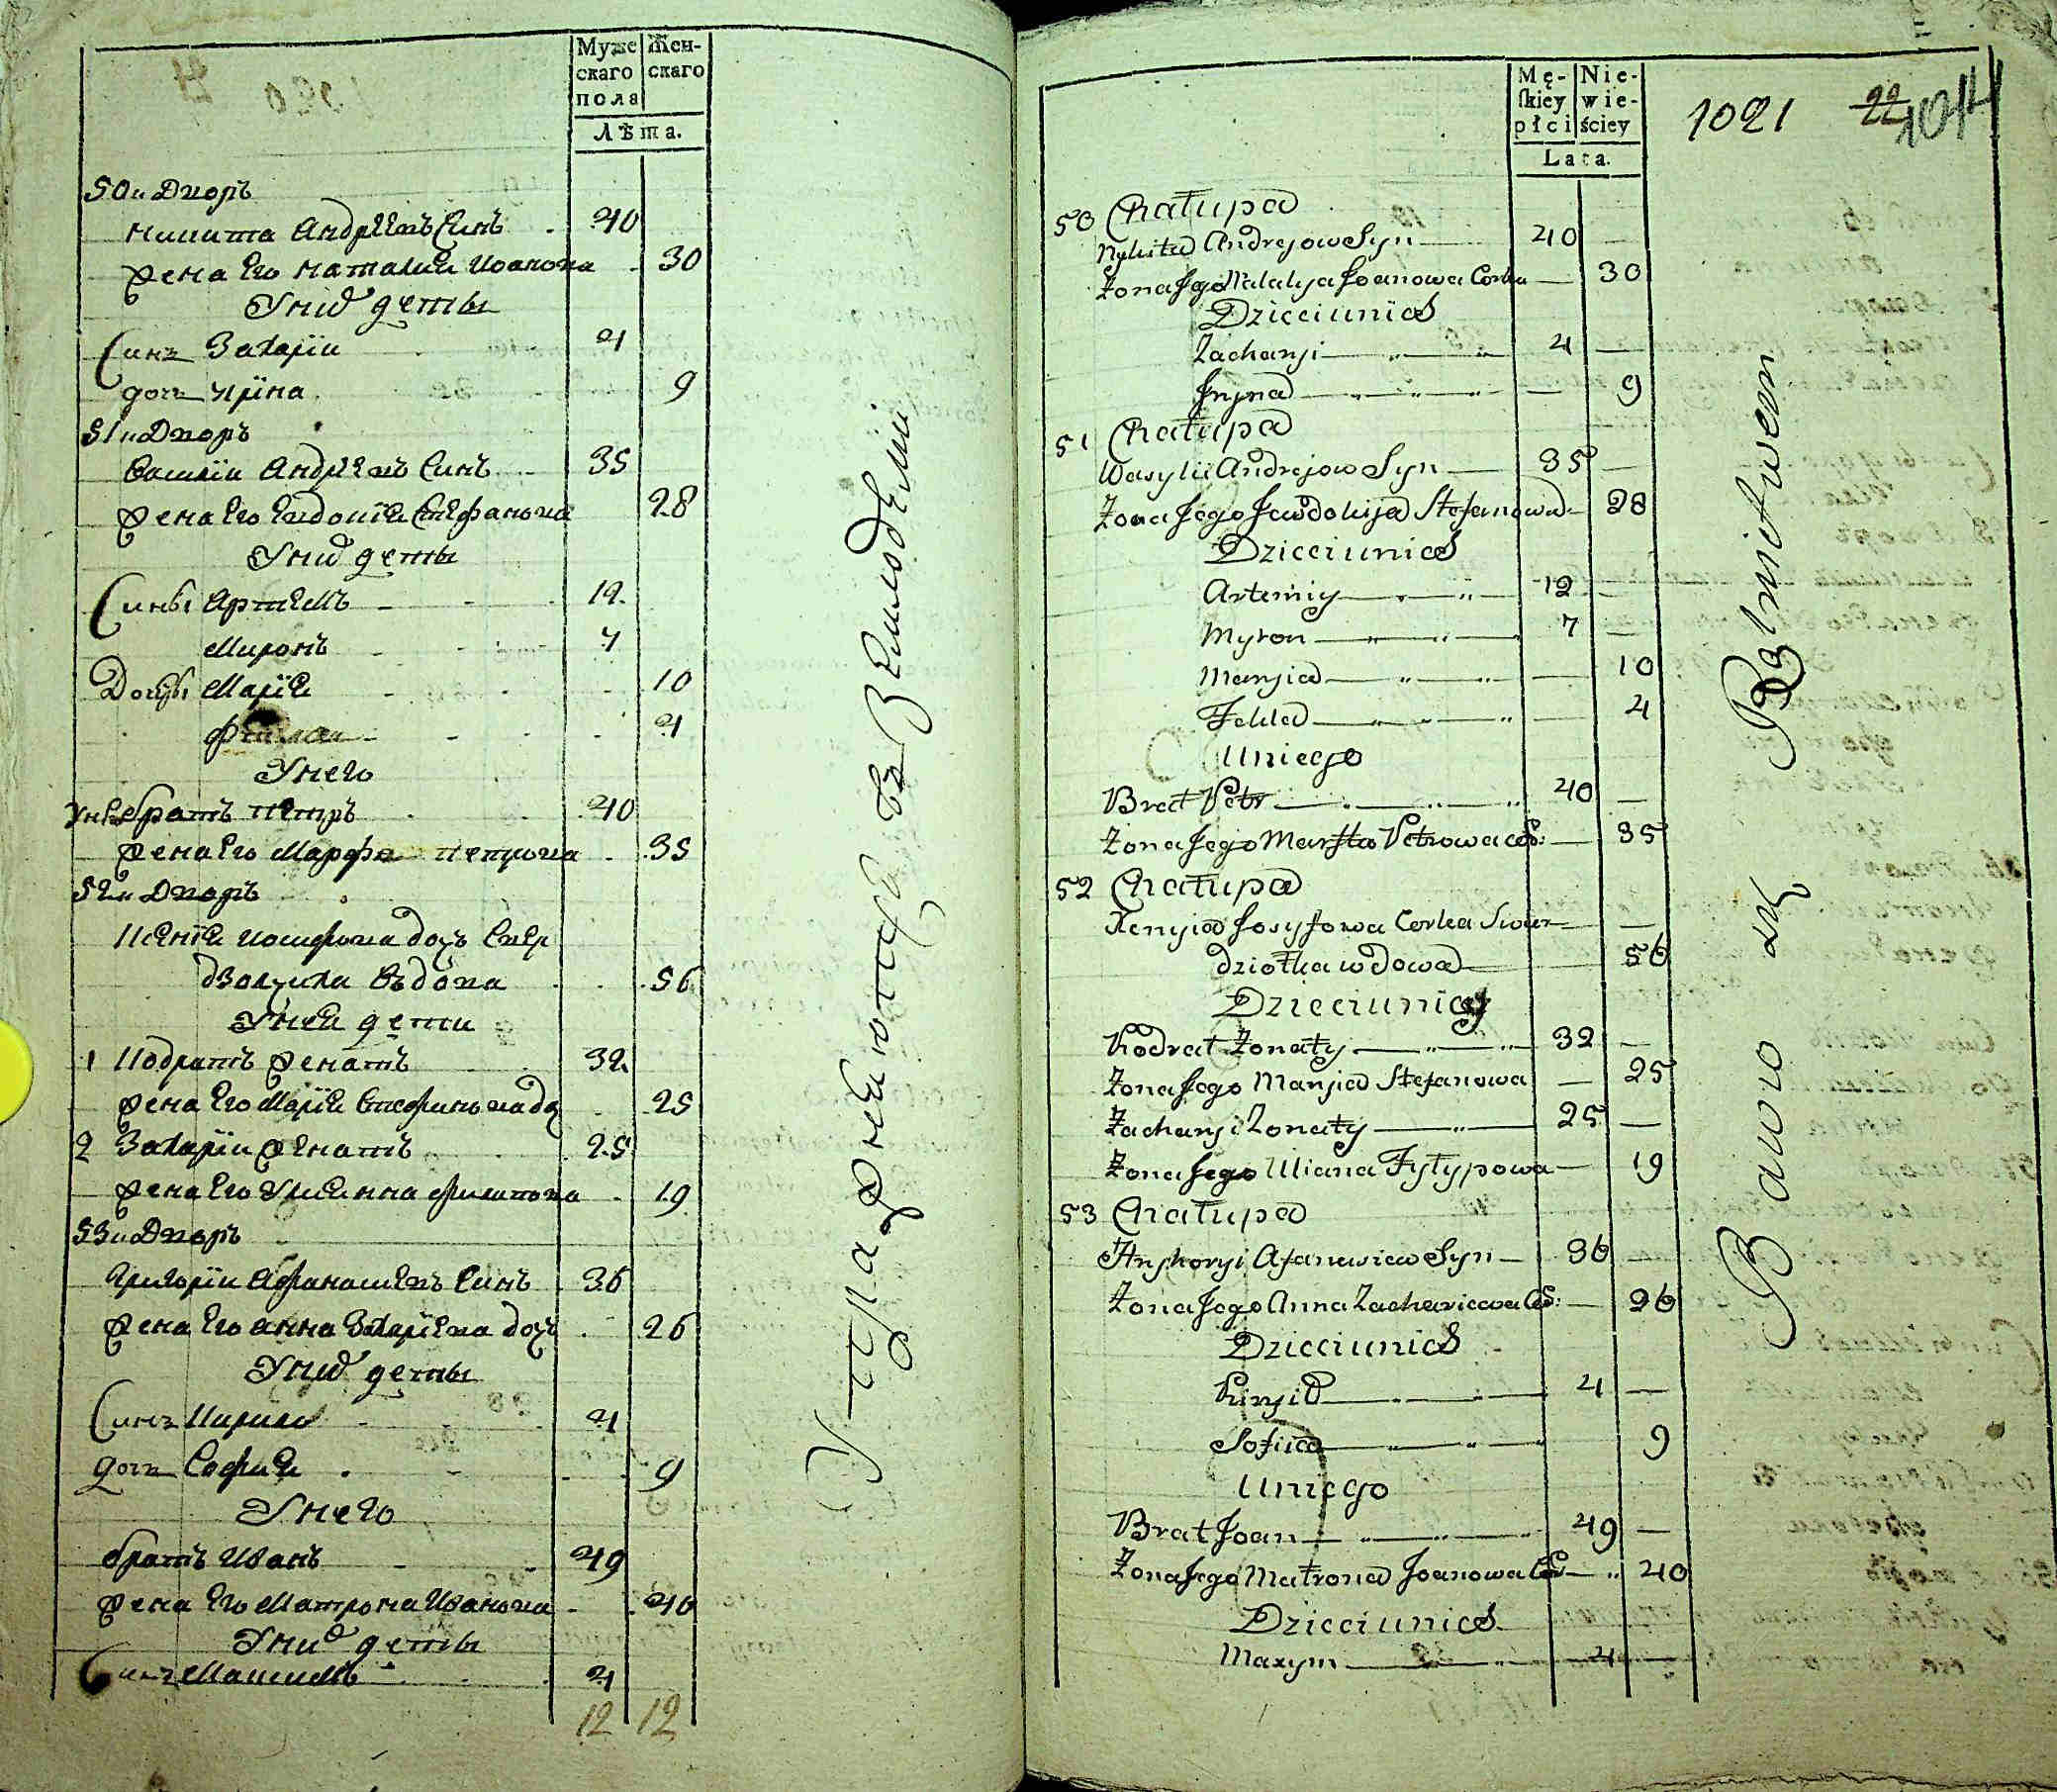 Муже
скаго
пола
Жен-
скаго
Лѣта.
50й Дворъ
Никита Андрѣевъ Синъ 40
Жена Его Наталия Иванова 30
У них дети
Синъ Захарїи 4
дочь Ирїна 9
51й Дворъ
Василїи Андрѣевъ Синъ 35
Жена Его Евдокїя Стефанова 28
У них дети
Сины Артемъ 12
Миронъ 7
Дочери Марїя 10
4
У него
братъ Петръ 40
Жена Его Марфа Петрова 35
52й Дворъ
Ксенїя Иосифова доч Свер
дзолиха вдова 56
У ней дети
1 Кодратъ Женатъ 32
Жена Его Марїя Стефанова до 25
2 Захарїи Женатъ 25
Жена Его Улиянна Филипова 19
53й Дворъ
Григорїи Афанасиевъ Синъ 36
Жена Его Анна Захарїева доч 26
У них дети
Синъ Кирило 4
дочь София 9
У него
братъ Иванъ 49
Жена Его Матрона Иванова 40
У них дети
Синъ Максимъ 4
12 12
Упражняются въ Земледелии
Mę-
skiey
płci
Nie-
wie-
ściey
Lata.
1021 22
50 Chałupa
Nykita Andrejow Syn 40
Żona Jego Natalija Joanowa Corka 30
Dzieci u nich
Zacharyi 4
Iryna 9
51 Chałupa
Wasylii Andrejow Syn 35
Żona Jego Jewdokija Stefanowa 28
Dzieci u nich
Artemiy 12
Myron 7
Maryia 10
Fekla 4
U niego
Brat Petr 40
Żona Jego Marfta Petrowa Co: 35
52 Chałupa
Xenyia Josyfowa Corka Swer
dziołka wdowa 56
Dzieci u niey
Kodrat Żonaty 32
Żona Jego Maryia Stefanowa 25
Zacharyi Żonaty 25
Żona Jego Uliana Fyłypowa 19
53 Chałupa
Hryhoryi Afanasiew Syn 36
Żona Jego Anna Zachariewa Co: 26
Dzieci u nich
Kiryło 4
Sofiia 9
U niego
Brat Joan 49
Żona Jego Matrona Joanowa Co 40
Dzieci u nich
Maxym 4
Bawio się Rolnictwem